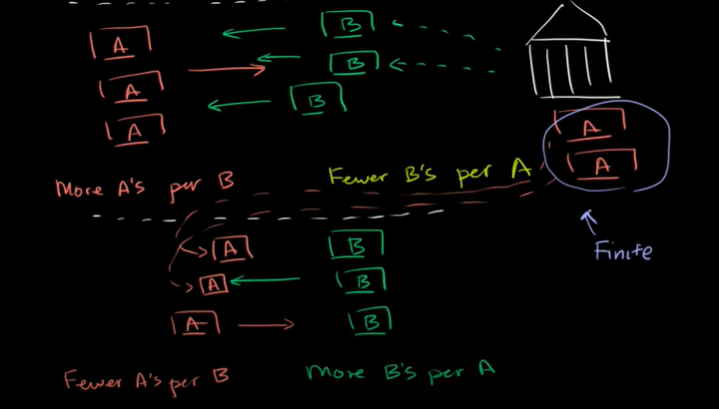 A B
A B
A B
A
A
More A's per B Fewer B's per A
Finite
A B
A B
A B
Fewer A's per B More B's per A